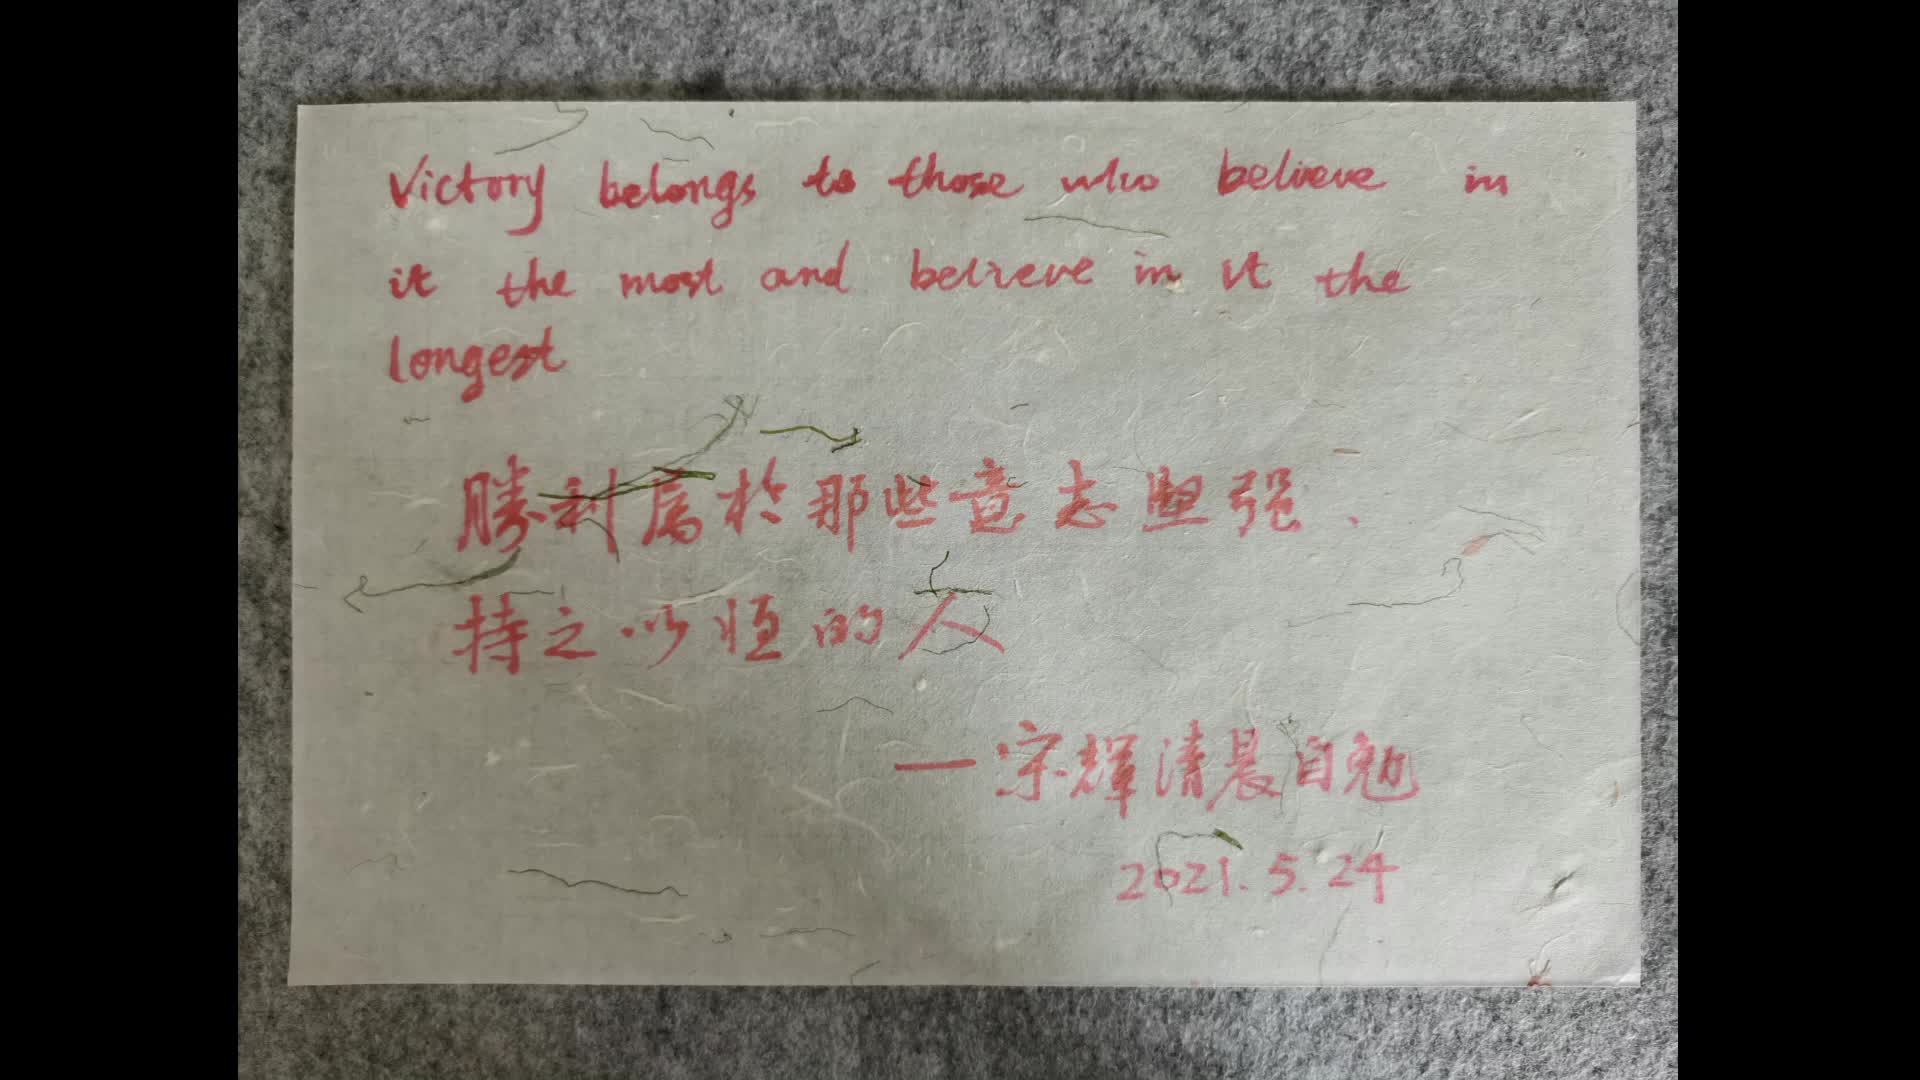 Victory belongs to those who believe in
it the most and believe in it the
longest
勝利属於那些意志坚强、
持之以恒的人
—宗輝清晨自勉
2021.5.24